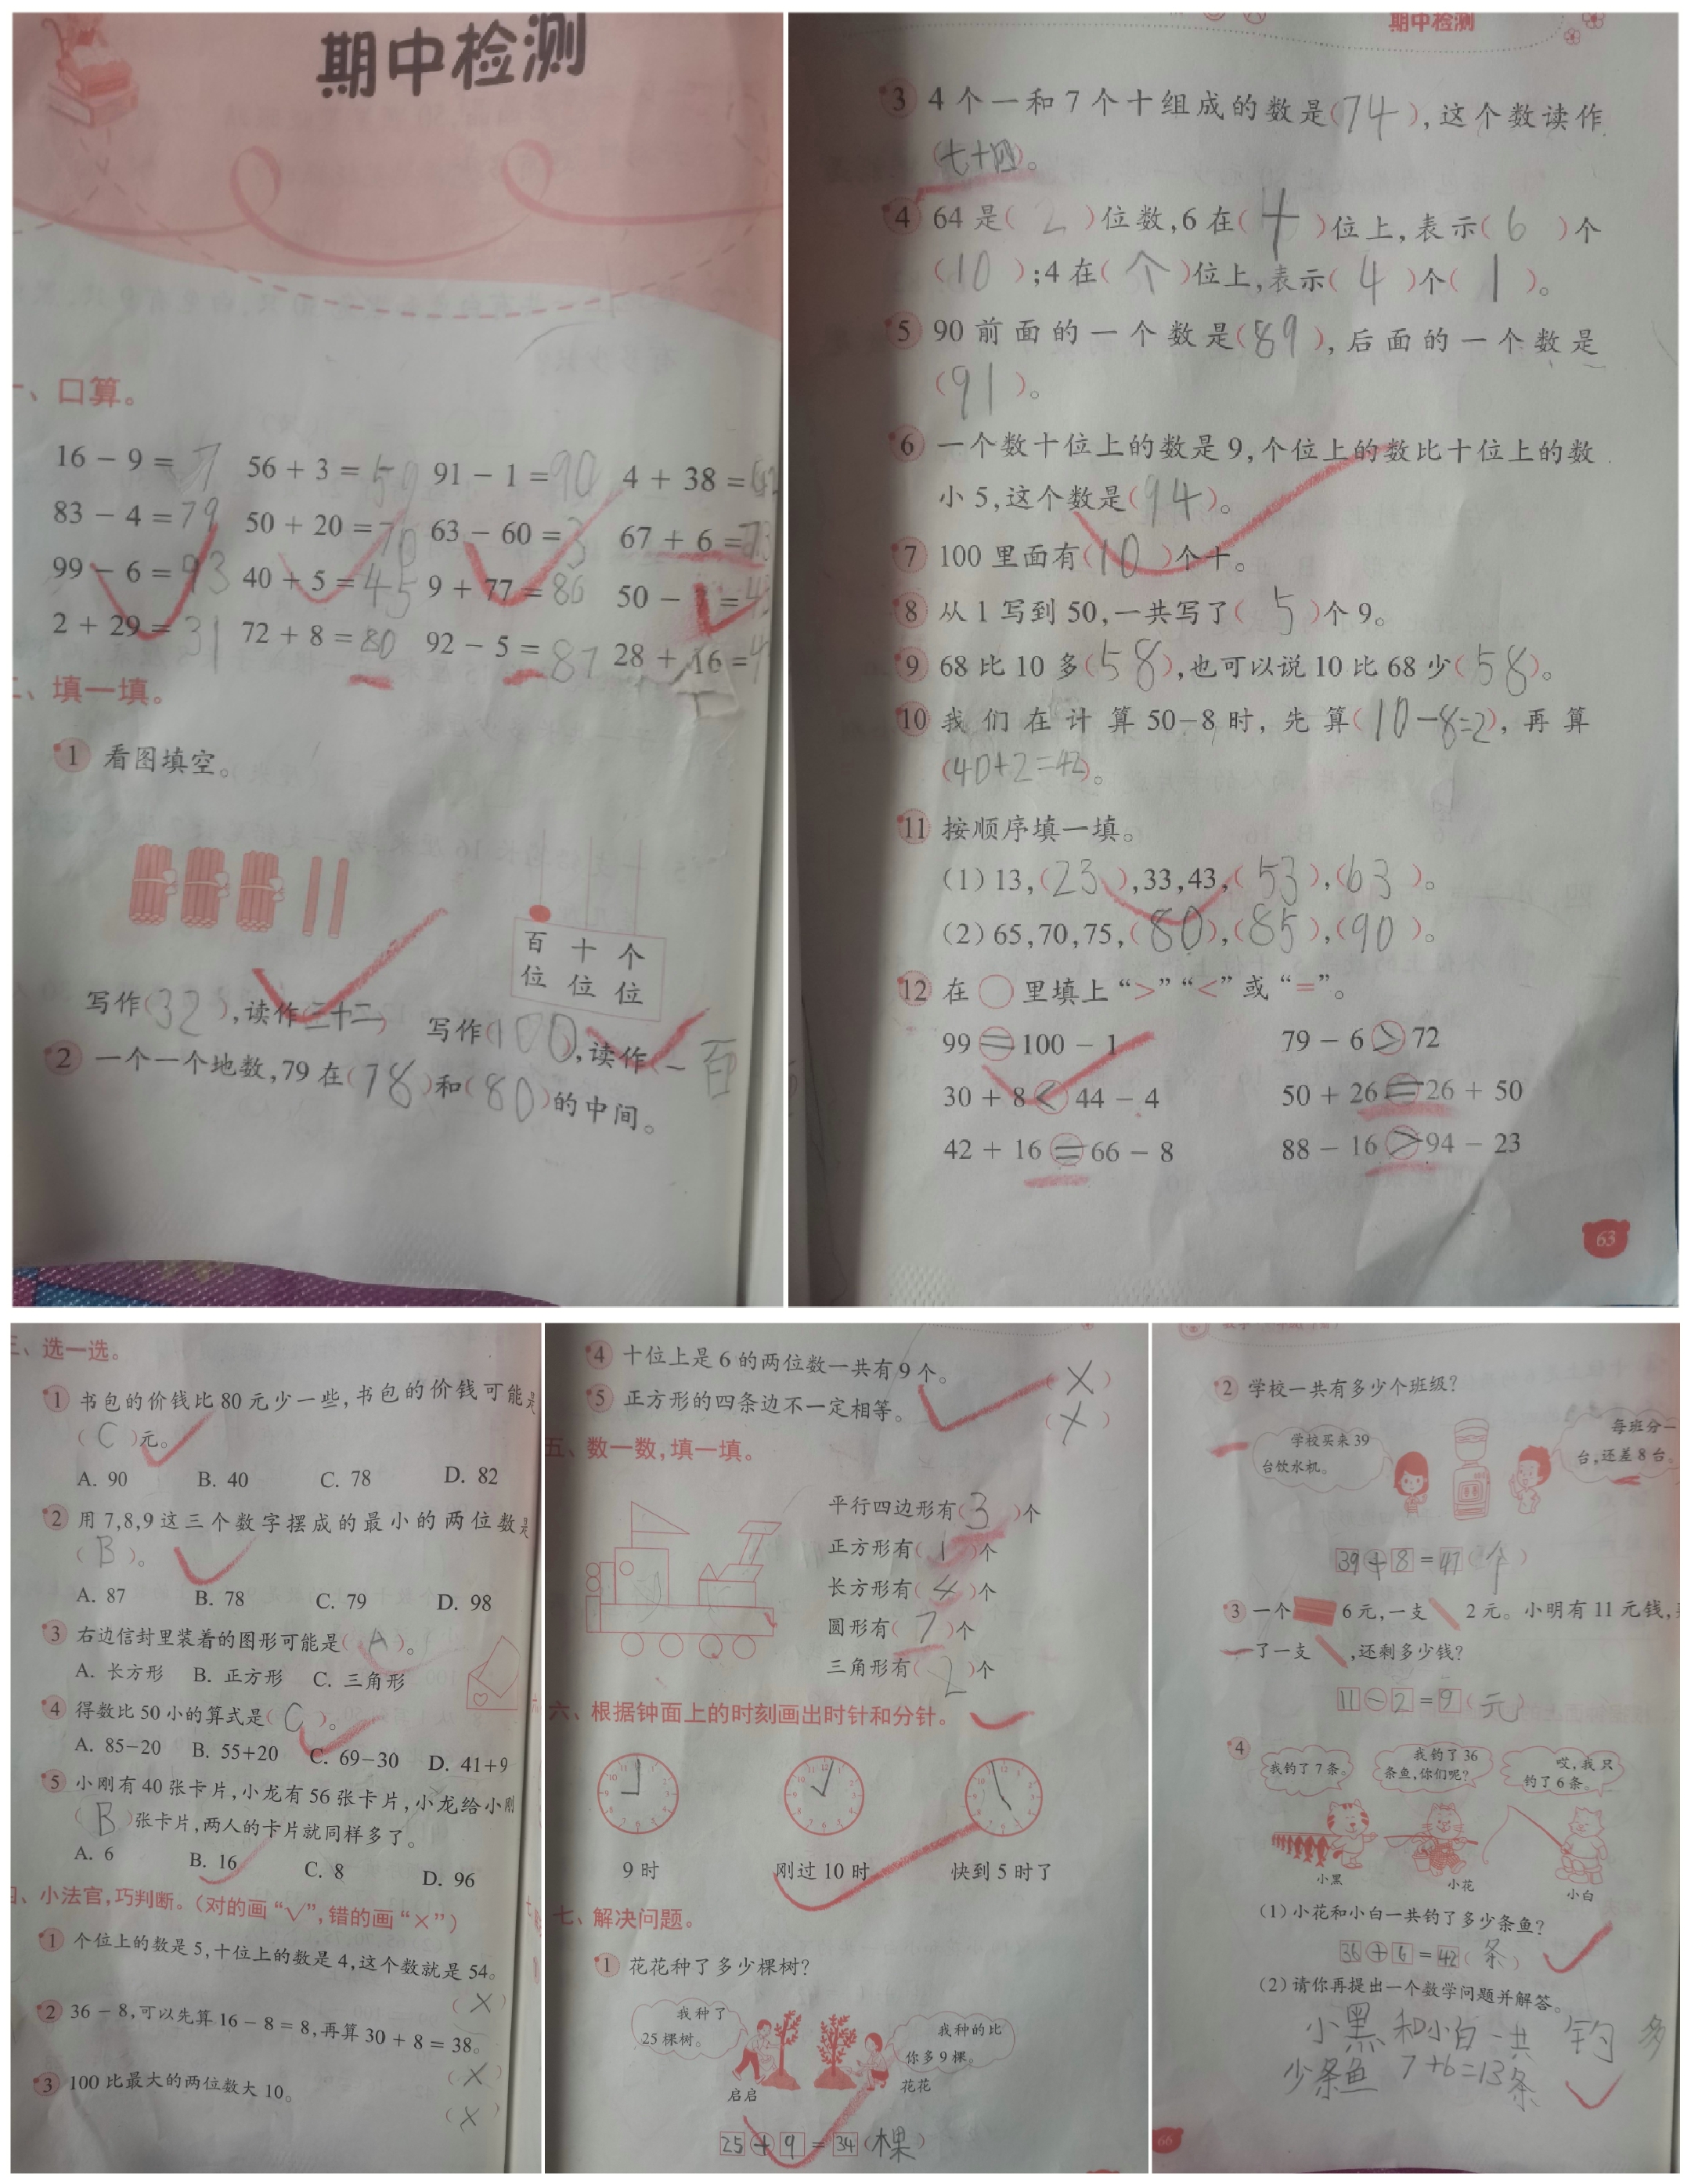 期中检测
一、口算。
16－9＝7 56＋3＝59 91－1＝90 4＋38＝42
83－4＝79 50＋20＝70 63－60＝3 67＋6＝73
99－6＝93 40＋5＝45 9＋77＝86 50－
2＋29＝31 72＋8＝80 92－5＝87 28＋16＝4
二、填一填。
1 看图填空。
百 十 个
位 位 位
写作(32),读作(三十二) 写作(100),读作(一百
2 一个一个地数,79在(78)和(80)的中间。
期中检测
3 4个一和7个十组成的数是(74),这个数读作
(七十四)。
4 64是(2)位数,6在(十)位上,表示(6)个
(10);4在(个)位上,表示(4)个(1)。
5 90前面的一个数是(89),后面的一个数是
(91)。
6 一个数十位上的数是9,个位上的数比十位上的数
小5,这个数是(94)。
7 100里面有(10)个十。
8 从1写到50,一共写了(5)个9。
9 68比10多(58),也可以说10比68少(58)。
10 我们在计算50－8时,先算(10－8=2),再算
(40+2=42)。
11 按顺序填一填。
(1)13,(23),33,43,(53),(63)。
(2)65,70,75,(80),(85),(90)。
12 在○里填上“>”“<”或“=”。
99=100－1 79－6>72
30＋8<44－4 50＋26=26＋50
42＋16=66－8 88－16>94－23
63
三、选一选。
1 书包的价钱比80元少一些,书包的价钱可能是
(C)元。
A. 90 B. 40 C. 78 D. 82
2 用7,8,9这三个数字摆成的最小的两位数是
(B)。
A. 87 B. 78 C. 79 D. 98
3 右边信封里装着的图形可能是(A)。
A. 长方形 B. 正方形 C. 三角形
4 得数比50小的算式是(C)。
A. 85－20 B. 55+20 C. 69－30 D. 41+9
5 小刚有40张卡片,小龙有56张卡片,小龙给小刚
(B)张卡片,两人的卡片就同样多了。
A. 6 B. 16 C. 8 D. 96
四、小法官,巧判断。(对的画“√”,错的画“×”)
1 个位上的数是5,十位上的数是4,这个数就是54。
(×)
2 36－8,可以先算16－8＝8,再算30＋8＝38。
(×)
3 100比最大的两位数大10。
(×)
4 十位上是6的两位数一共有9个。 (×)
5 正方形的四条边不一定相等。 (×)
五、数一数,填一填。
平行四边形有(3)个
正方形有(1)个
长方形有(4)个
圆形有(7)个
三角形有(2)个
六、根据钟面上的时刻画出时针和分针。
9时 刚过10时 快到5时了
七、解决问题。
1 花花种了多少棵树?
我种了
25棵树。
我种的比
你多9棵。
启启 花花
25＋9＝34(棵)
2 学校一共有多少个班级?
学校买来39
台饮水机。
每班分一
台,还差8台。
39＋8＝47(个)
3 一个 6元,一支 2元。小明有11元钱,
了一支 ,还剩多少钱?
11－2＝9(元)
4
我钓了7条。
我钓了36
条鱼,你们呢?
哎,我只
钓了6条。
小黑 小花 小白
(1)小花和小白一共钓了多少条鱼?
36＋6＝42(条)
(2)请你再提出一个数学问题并解答。
小黑和小白一共钓多
少条鱼 7+6=13条
66